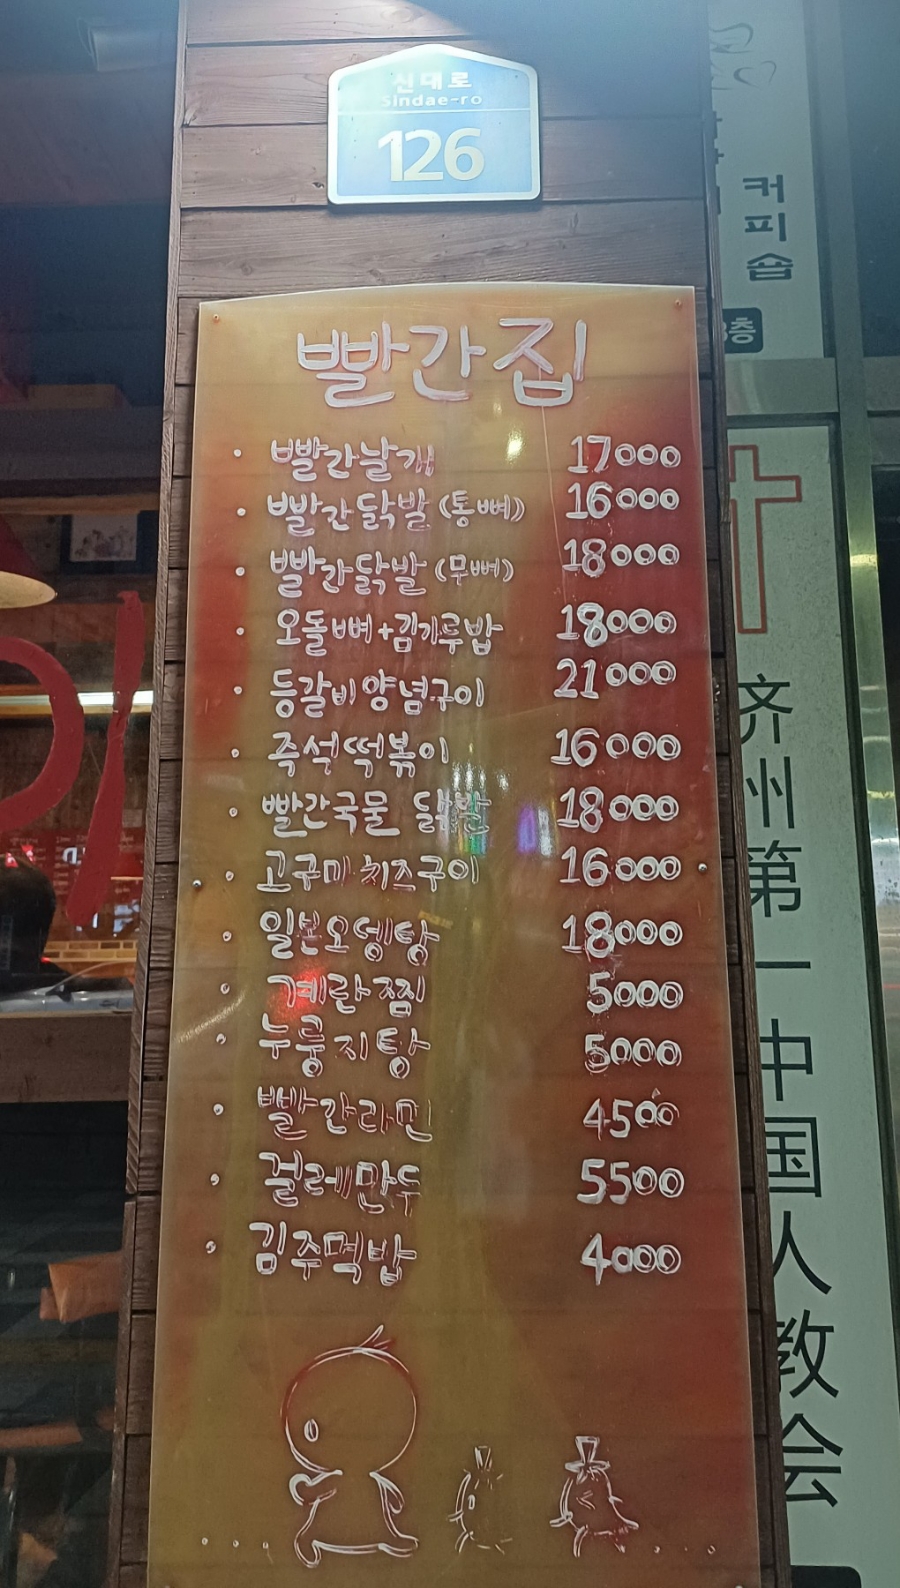 신대로
Sindae-ro
126
커피숍
3층
빨간집
빨간날개 17000
빨간닭발 (통뼈) 16000
빨간닭발 (무뼈) 18000
오돌뼈+김가루밥 18000
등갈비양념구이 21000
즉석떡볶이 16000
빨간국물 닭발 18000
고구마치즈구이 16000
일본오뎅탕 18000
계란찜 5000
누룽지탕 5000
빨간라면 4500
걸레만두 5500
김주먹밥 4000
济州第一中国人教会